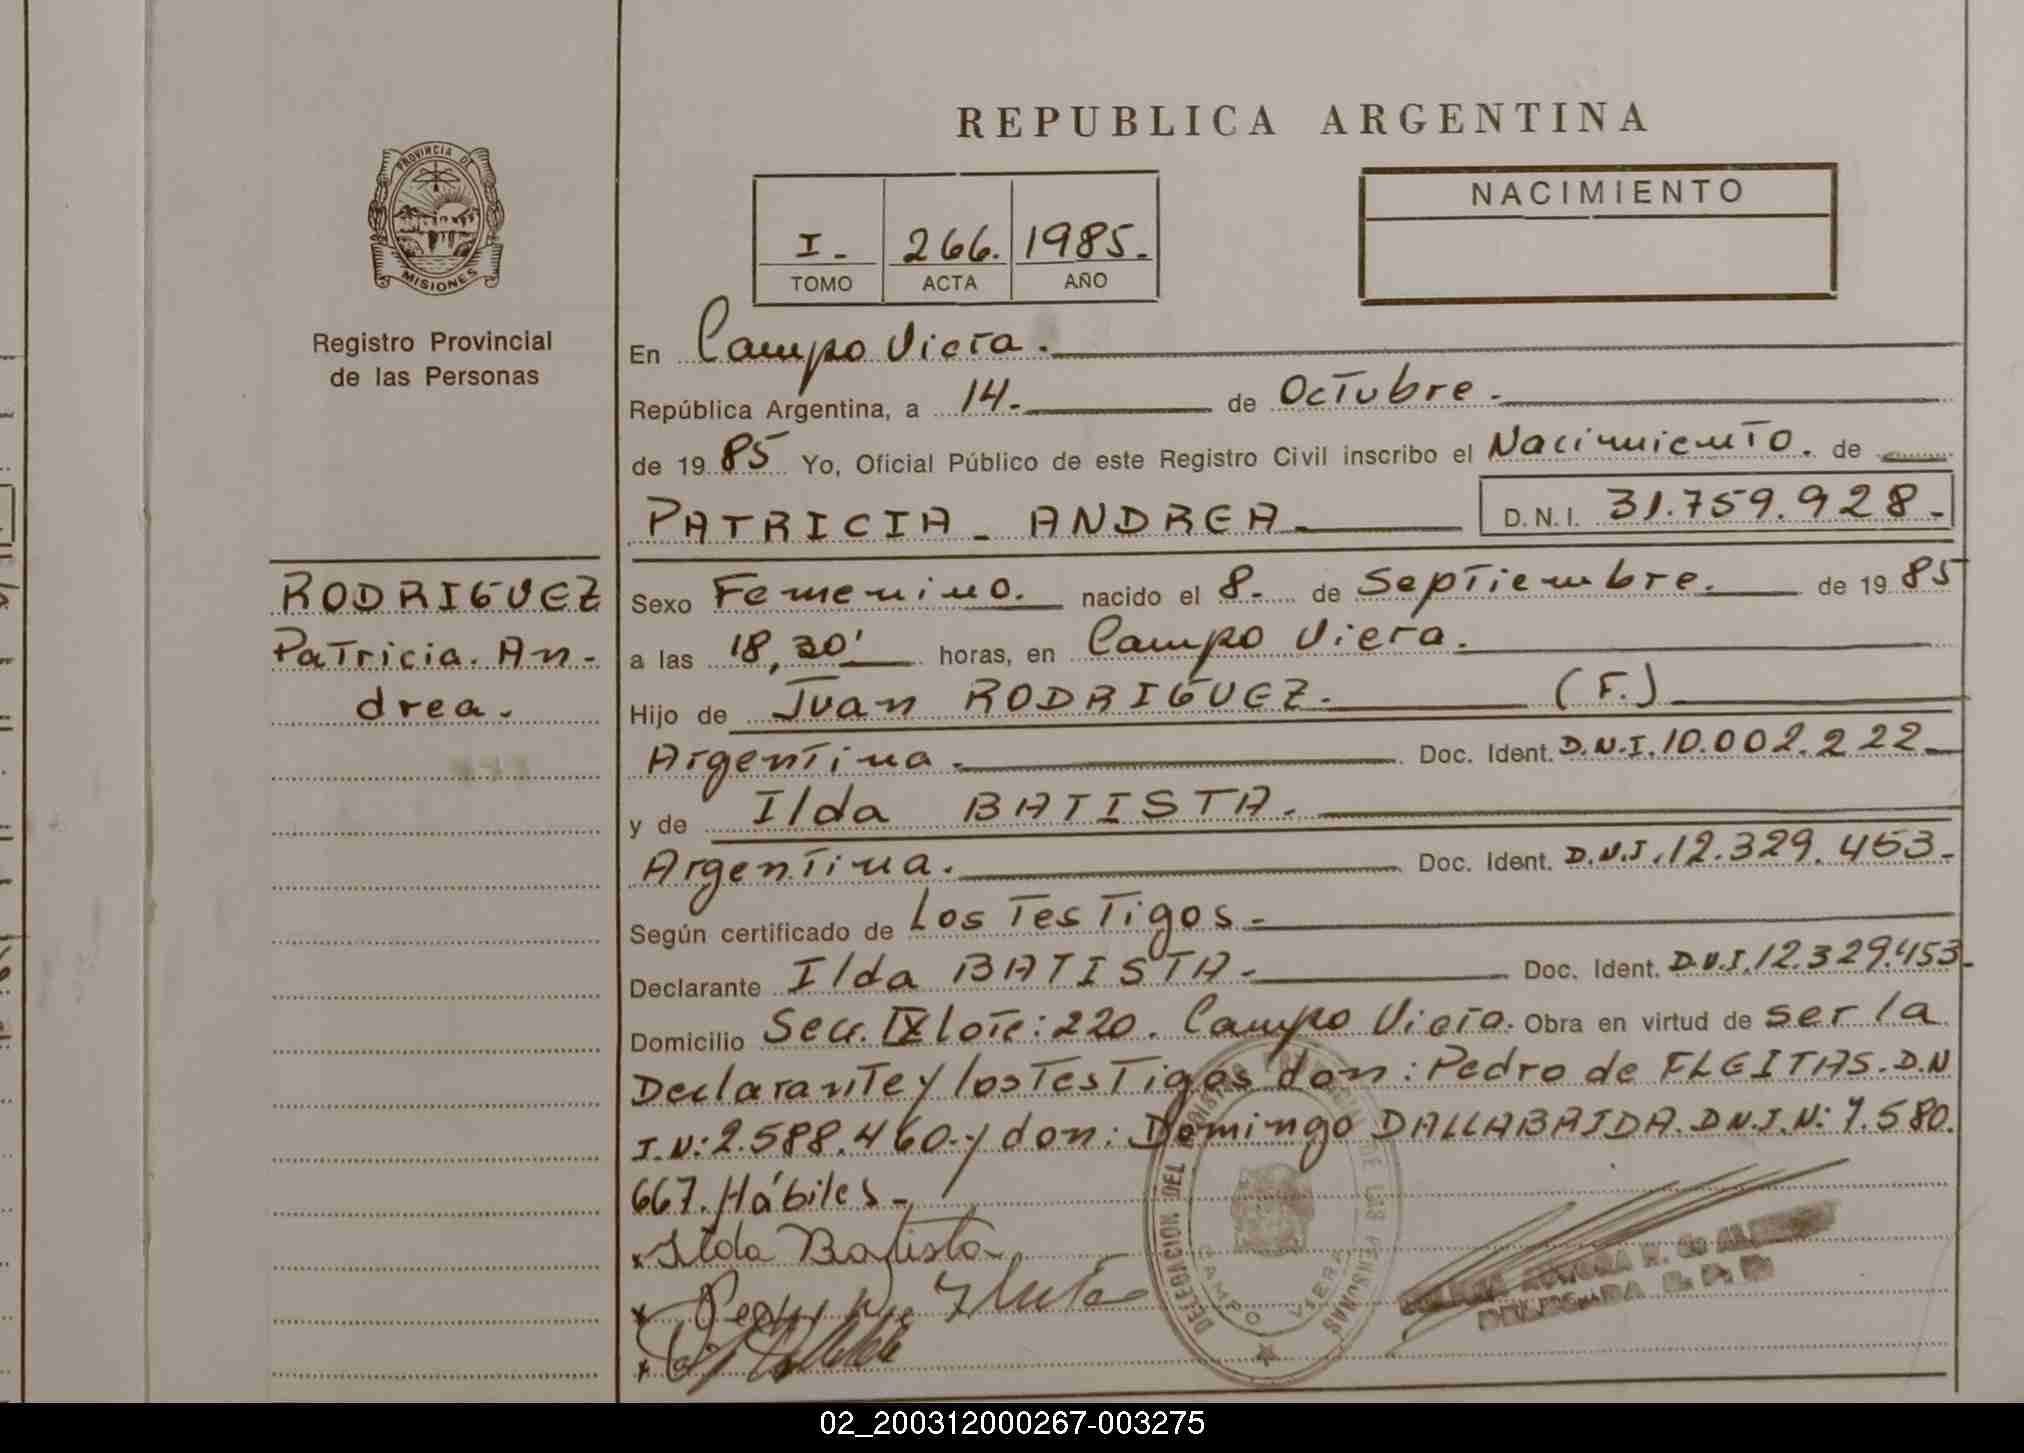 REPUBLICA ARGENTINA
PROVINCIA DE
MISIONES
Registro Provincial
de las Personas
I.- 266. 1985.-
TOMO ACTA AÑO
NACIMIENTO
En Campo Viera.
República Argentina, a 14.- de Octubre.-
de 19 85 Yo, Oficial Público de este Registro Civil inscribo el Nacimiento. de
PATRICIA - ANDREA.- D.N.I. 31.759.928.-
RODRIGUEZ
Patricia. An-
drea.
Sexo Femenino. nacido el 8. de Septiembre. de 19 85
a las 18,30' horas, en Campo Viera.
Hijo de Juan RODRIGUEZ. (F.)
Argentina.- Doc. Ident. D.N.I. 10.002.222-
y de Ilda BATISTA.-
Argentina. Doc. Ident. D.N.I. 12.329.453.-
Según certificado de Los Testigos.-
Declarante Ilda BATISTA.- Doc. Ident. D.N.I. 12.329.453.-
Domicilio Secc. IX lote: 220. Campo Viera. Obra en virtud de ser la
Declarante y los Testigos don: Pedro de FLEITAS. D.N
I.N: 2.588.460.- y don: Domingo DALLABRIDA. D.N.I.N: 7.580.
667. Hábiles.-
x Ilda Batista
x
x
DELEGACION DEL REGISTRO PROVINCIAL DE LAS PERSONAS
CAMPO VIERA
DELEGADA R. P. P.
02_200312000267-003275